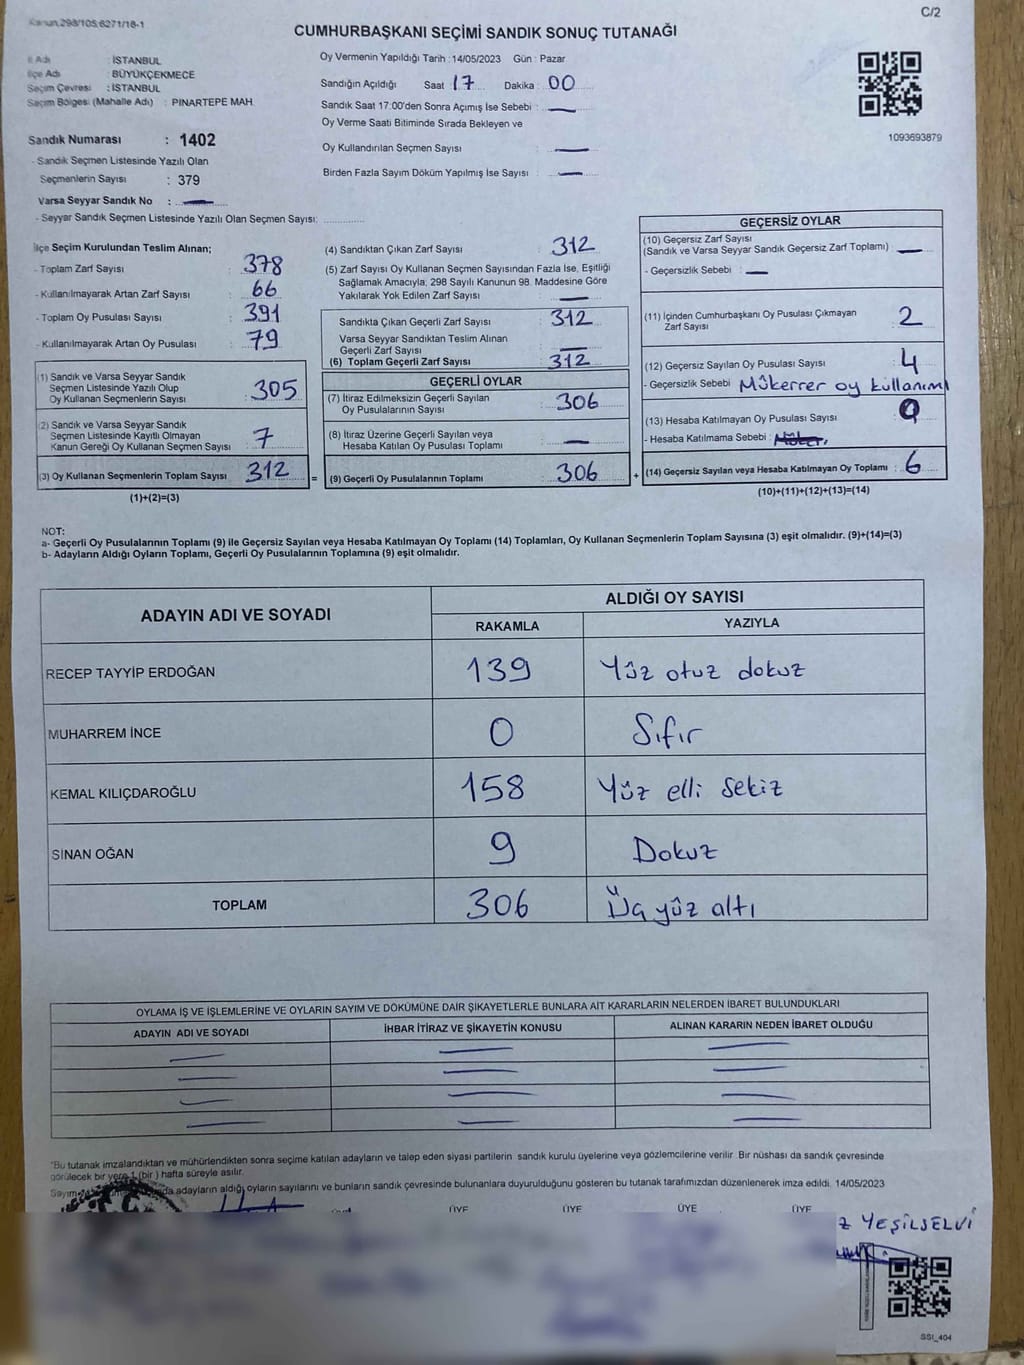 Kanun,298/105,6271/18-1
C/2
CUMHURBAŞKANI SEÇİMİ SANDIK SONUÇ TUTANAĞI
İl Adı : İSTANBUL
İlçe Adı : BÜYÜKÇEKMECE
Seçim Çevresi : İSTANBUL
Seçim Bölgesi (Mahalle Adı) : PINARTEPE MAH.
Sandık Numarası : 1402
- Sandık Seçmen Listesinde Yazılı Olan
Seçmenlerin Sayısı : 379
Varsa Seyyar Sandık No : —
- Seyyar Sandık Seçmen Listesinde Yazılı Olan Seçmen Sayısı:
Oy Vermenin Yapıldığı Tarih : 14/05/2023 Gün : Pazar
Sandığın Açıldığı Saat : 17 Dakika : 00
Sandık Saat 17:00'den Sonra Açımış İse Sebebi : —
Oy Verme Saati Bitiminde Sırada Bekleyen ve
Oy Kullandırılan Seçmen Sayısı : —
Birden Fazla Sayım Döküm Yapılmış İse Sayısı : —
1093693879
İlçe Seçim Kurulundan Teslim Alınan;
- Toplam Zarf Sayısı : 378
- Kullanılmayarak Artan Zarf Sayısı : 66
- Toplam Oy Pusulası Sayısı : 391
- Kullanılmayarak Artan Oy Pusulası : 79
(1) Sandık ve Varsa Seyyar Sandık
Seçmen Listesinde Yazılı Olup
Oy Kullanan Seçmenlerin Sayısı : 305
(2) Sandık ve Varsa Seyyar Sandık
Seçmen Listesinde Kayıtlı Olmayan
Kanun Gereği Oy Kullanan Seçmen Sayısı : 7
(3) Oy Kullanan Seçmenlerin Toplam Sayısı : 312 =
(1)+(2)=(3)
(4) Sandıktan Çıkan Zarf Sayısı : 312
(5) Zarf Sayısı Oy Kullanan Seçmen Sayısından Fazla İse, Eşitliği
Sağlamak Amacıyla, 298 Sayılı Kanunun 98. Maddesine Göre
Yakılarak Yok Edilen Zarf Sayısı : —
Sandıkta Çıkan Geçerli Zarf Sayısı : 312
Varsa Seyyar Sandıktan Teslim Alınan
Geçerli Zarf Sayısı : —
(6) Toplam Geçerli Zarf Sayısı : 312
GEÇERLİ OYLAR
(7) İtiraz Edilmeksizin Geçerli Sayılan
Oy Pusulalarının Sayısı : 306
(8) İtiraz Üzerine Geçerli Sayılan veya
Hesaba Katılan Oy Pusulası Toplamı : —
(9) Geçerli Oy Pusulalarının Toplamı : 306 +
GEÇERSİZ OYLAR
(10) Geçersiz Zarf Sayısı
(Sandık ve Varsa Seyyar Sandık Geçersiz Zarf Toplamı) : —
- Geçersizlik Sebebi : —
(11) İçinden Cumhurbaşkanı Oy Pusulası Çıkmayan
Zarf Sayısı : 2
(12) Geçersiz Sayılan Oy Pusulası Sayısı : 4
- Geçersizlik Sebebi Mükerrer oy kullanımı
(13) Hesaba Katılmayan Oy Pusulası Sayısı : 0
- Hesaba Katılmama Sebebi :
(14) Geçersiz Sayılan veya Hesaba Katılmayan Oy Toplamı : 6
(10)+(11)+(12)+(13)=(14)
NOT:
a- Geçerli Oy Pusulalarının Toplamı (9) ile Geçersiz Sayılan veya Hesaba Katılmayan Oy Toplamı (14) Toplamları, Oy Kullanan Seçmenlerin Toplam Sayısına (3) eşit olmalıdır. (9)+(14)=(3)
b- Adayların Aldığı Oyların Toplamı, Geçerli Oy Pusulalarının Toplamına (9) eşit olmalıdır.
ADAYIN ADI VE SOYADI
ALDIĞI OY SAYISI
RAKAMLA YAZIYLA
RECEP TAYYİP ERDOĞAN 139 Yüz otuz dokuz
MUHARREM İNCE 0 Sıfır
KEMAL KILIÇDAROĞLU 158 Yüz elli sekiz
SİNAN OĞAN 9 Dokuz
TOPLAM 306 Üç yüz altı
OYLAMA İŞ VE İŞLEMLERİNE VE OYLARIN SAYIM VE DÖKÜMÜNE DAİR ŞİKAYETLERLE BUNLARA AİT KARARLARIN NELERDEN İBARET BULUNDUKLARI
ADAYIN ADI VE SOYADI İHBAR İTİRAZ VE ŞİKAYETİN KONUSU ALINAN KARARIN NEDEN İBARET OLDUĞU
*Bu tutanak imzalandıktan ve mühürlendikten sonra seçime katılan adayların ve talep eden siyasi partilerin sandık kurulu üyelerine veya gözlemcilerine verilir. Bir nüshası da sandık çevresinde
görülecek bir yere 1 (bir ) hafta süreyle asılır.
Sayım adayların aldığı oyların sayılarını ve bunların sandık çevresinde bulunanlara duyurulduğunu gösteren bu tutanak tarafımızdan düzenlenerek imza edildi. 14/05/2023
ÜYE ÜYE ÜYE ÜYE
YEŞİLSELVİ
SSI_404